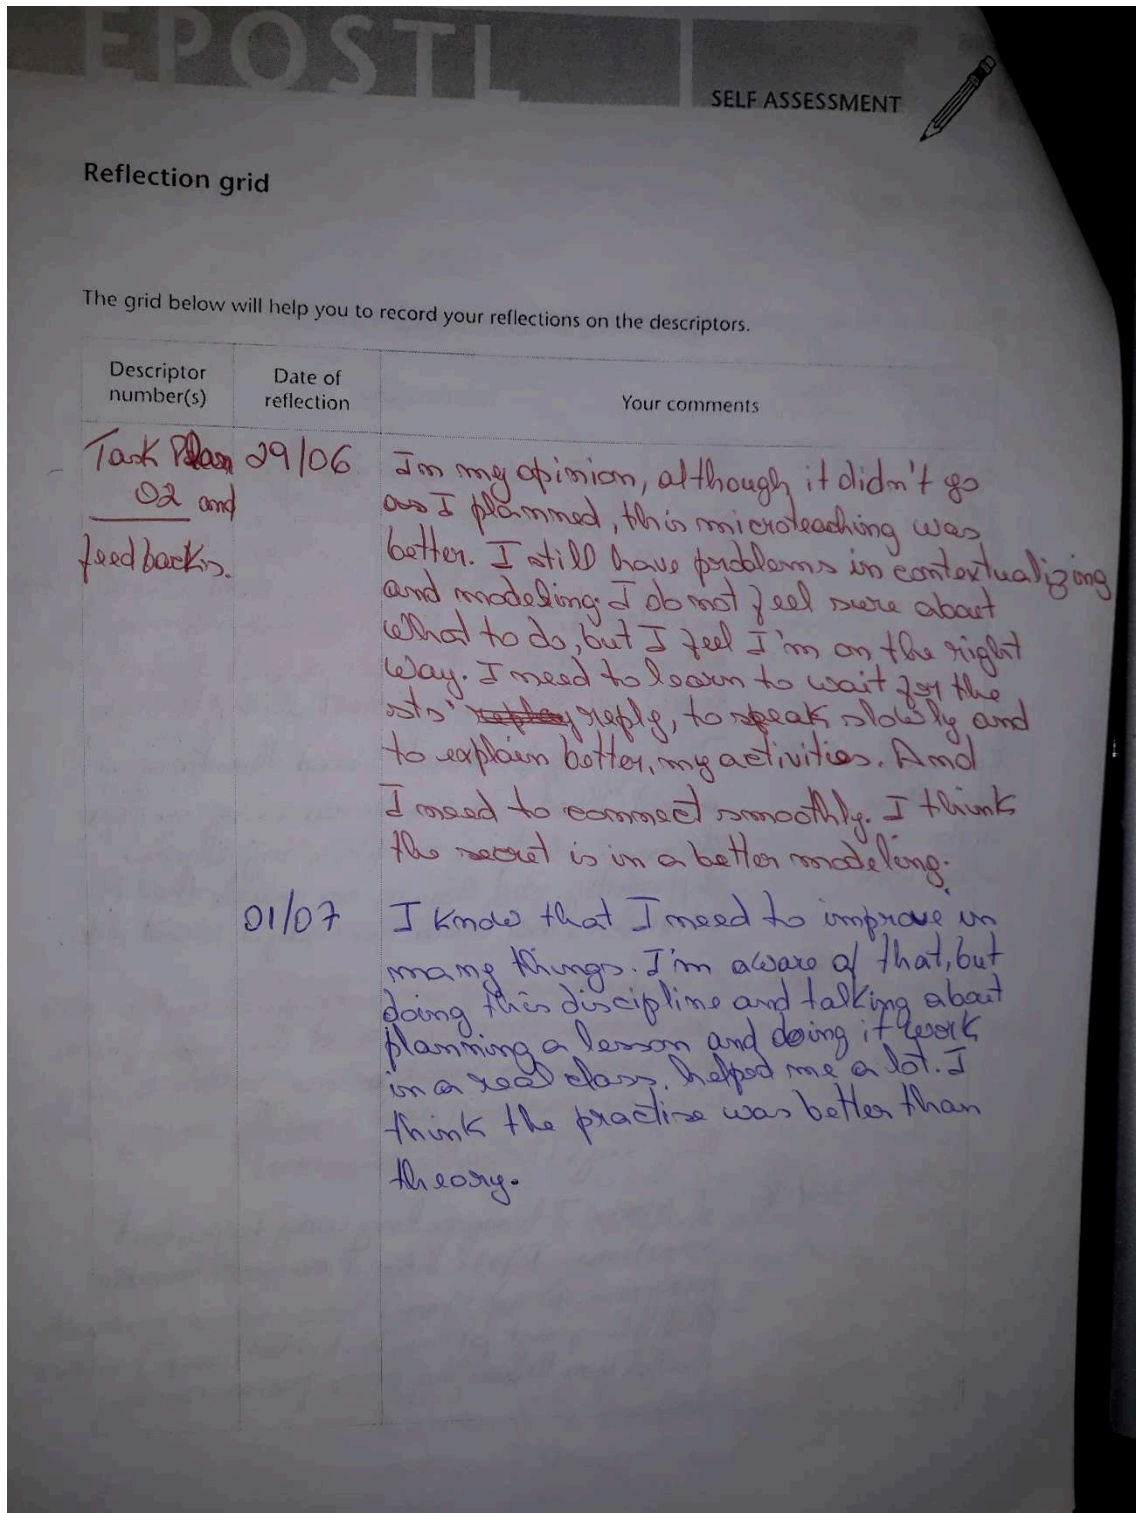 EPOSTL
SELF ASSESSMENT
Reflection grid
The grid below will help you to record your reflections on the descriptors.
Descriptor number(s)
Date of reflection
Your comments
Task Plan
02 and
feedbacks.
29/06
In my opinion, although it didn't go
as I planned, this microteaching was
better. I still have problems in contextualizing
and modeling. I do not feel sure about
what to do, but I feel I'm on the right
way. I need to learn to wait for the
sts' reply, to speak slowly and
to explain better, my activities. And
I need to connect smoothly. I think
the secret is in a better modeling.
01/07
I know that I need to improve in
many things. I'm aware of that, but
doing this discipline and talking about
planning a lesson and doing it work
in a real class, helped me a lot. I
think the practise was better than
theory.